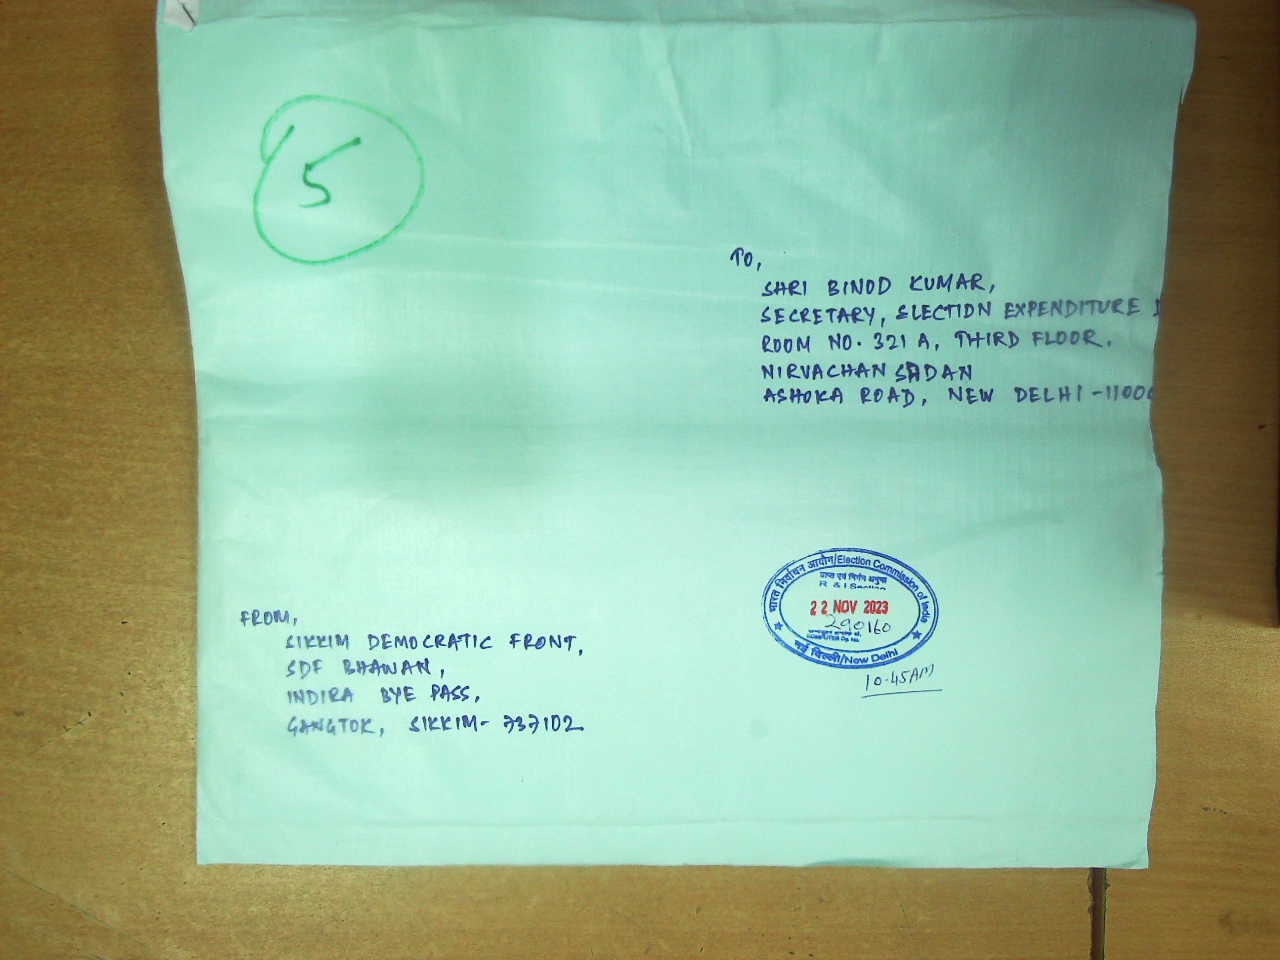 5
TO,
SHRI BINOD KUMAR,
SECRETARY, ELECTION EXPENDITURE
ROOM NO. 321 A, THIRD FLOOR.
NIRVACHAN SADAN
ASHOKA ROAD, NEW DELHI - 1100
भारत निर्वाचन आयोग/Election Commission of India
प्राप्त एवं निर्गम अनुभाग
R & I Section
22 NOV 2023
290160
COMPUTER Dy. No.
नई दिल्ली/New Delhi
10.45AM
FROM,
SIKKIM DEMOCRATIC FRONT,
SDF BHAWAN,
INDIRA BYE PASS,
GANGTOK, SIKKIM- 737102